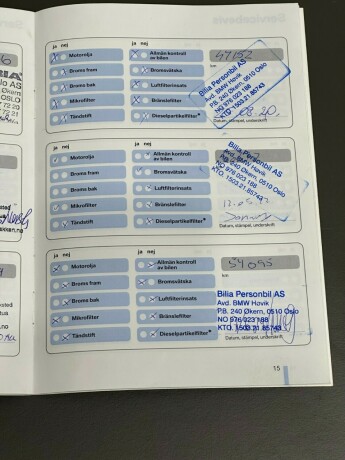 Servicebevis
ja nej
Motorolja
Broms fram
Broms bak
Mikrofilter
Tändstift
ja nej
Allmän kontroll
av bilen
Bromsvätska
Luftfilterinsats
Bränslefilter
Dieselpartikelfilter*
47152
km
Bilia Personbil AS
Avd. BMW Høvik
P.B. 240 Økern, 0510 Oslo
NO 976 023 188
KTO. 1503.21.85743
08.20.
Datum, stämpel, underskrift
ja nej
Motorolja
Broms fram
Broms bak
Mikrofilter
Tändstift
ja nej
Allmän kontroll
av bilen
Bromsvätska
Luftfilterinsats
Bränslefilter
Dieselpartikelfilter*
Bilia Personbil AS
Avd. BMW Høvik
P.B. 240 Økern, 0510 Oslo
NO 976 023 188
KTO. 1503.21.85743
Datum, stämpel, underskrift
ja nej
Motorolja
Broms fram
Broms bak
Mikrofilter
Tändstift
ja nej
Allmän kontroll
av bilen
Bromsvätska
Luftfilterinsats
Bränslefilter
Dieselpartikelfilter*
54095
km
Bilia Personbil AS
Avd. BMW Høvik
P.B. 240 Økern, 0510 Oslo
NO 976 023 188
KTO. 1503.21.85743
Datum, stämpel, underskrift
15